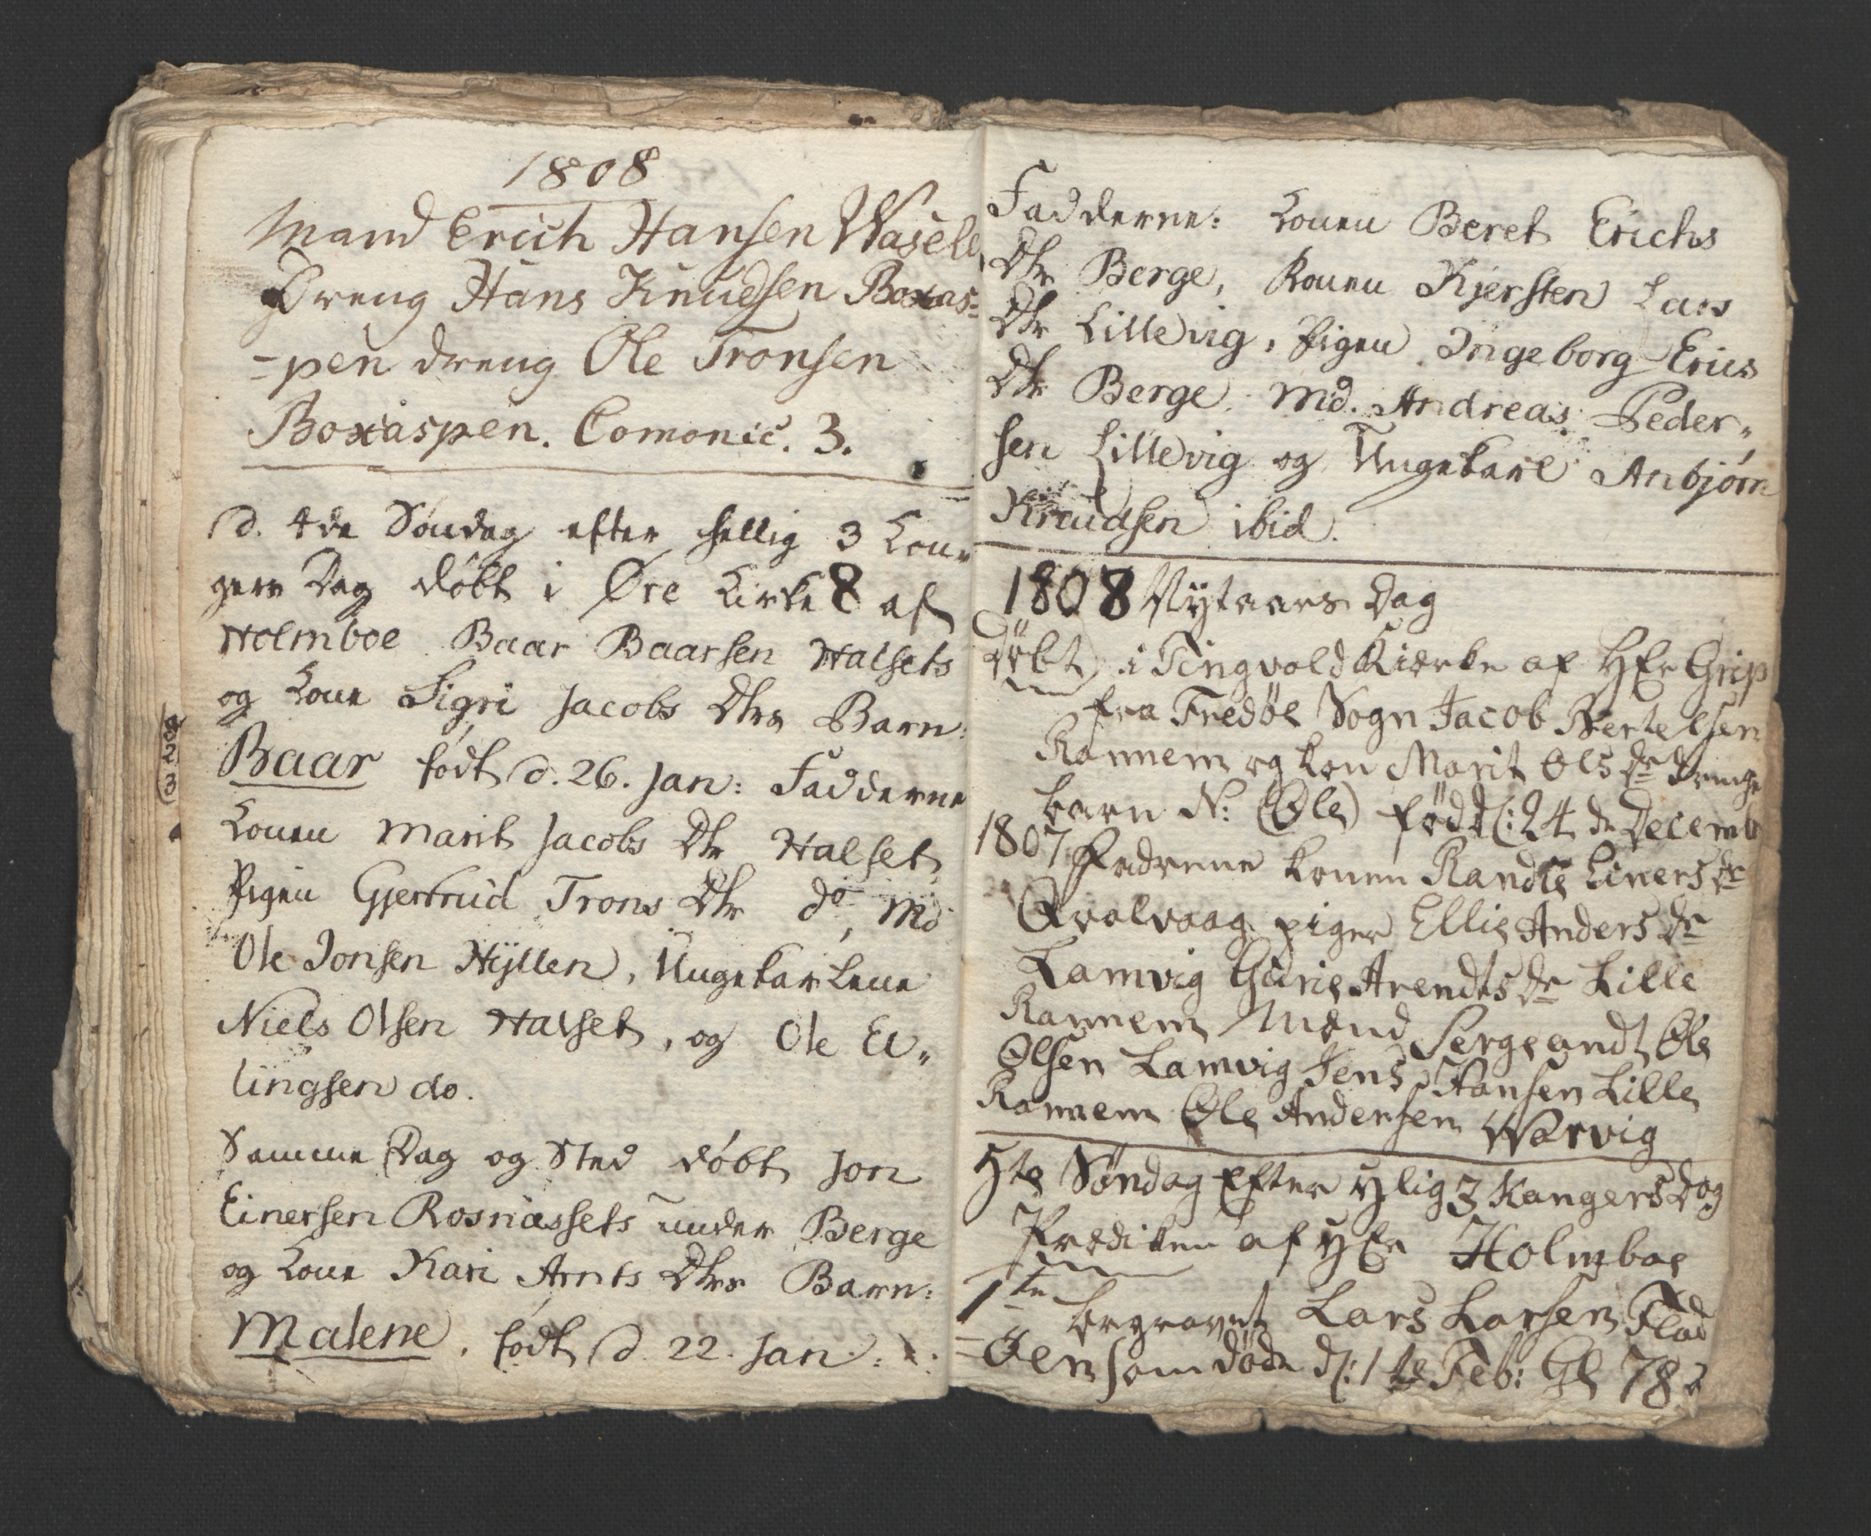 1808
Mand Erich Hansen Waseli
Dreng Hans Knudsen Boxas=
=pen dreng Ole Tronsen
Boxaspen. Comonic. 3.
d. 4de Søndag efter hellig 3 Kon„
gers Dag døbt i Øre Kirke 8 af
Holmboe Baar Baarsen Halsets
og Kone Sigri Jacobs Dtrs Barn:
Baar født d. 26. Jan: Fadderne
Konen Marit Jacobs Dtr Halset,
Pigen Gjertrud Trons Dtr do, Md
Ole Jonsen Hyllen, Ungekarlene
Niels Olsen Halset, og Ole El„
lingsen do.
Samme Dag og Sted døbt Jon
Einersen Rosnassets under Berge
og Kone Kari Arnts Dtrs Barn:
Malene, født d. 22. Jan:
Fadderne: Konen Beret Erichs
Dtr Berge, Konen Kjersten Lars
Dtr Lillevig, Pigen Ingeborg Erics
Dtr Berge. Md. Andreas Peder„
sen Lillevig og Ungekarl Anbjørn
Knudsen ibid.
1808 Nytaars Dag
Døbt i Tingvold Kiærke af HEr Grip
fra Fredøe Sogn Jacob Bertelsen
Rannem og kon Marit Ols dr drenge
barn N: (Ole) født d: 24 de Decemb
1807 Fadrene konen Randie Einers dr
Qvalvaag piger Ellie Anders dr
Lamvig Gurie Arendts dr Lille
Rannem Mænd Sergeandt Ole
Olsen Lamvig Jens Hansen Lille
Rannem Ole Andersen Warvig
5te Søndag Efter Hlig 3 Kangers Dog
Prædiken af HEr Holmboe
1te begravet Lars Larsen Flad
=Øen som døde d: 1te Feb: Gl 78